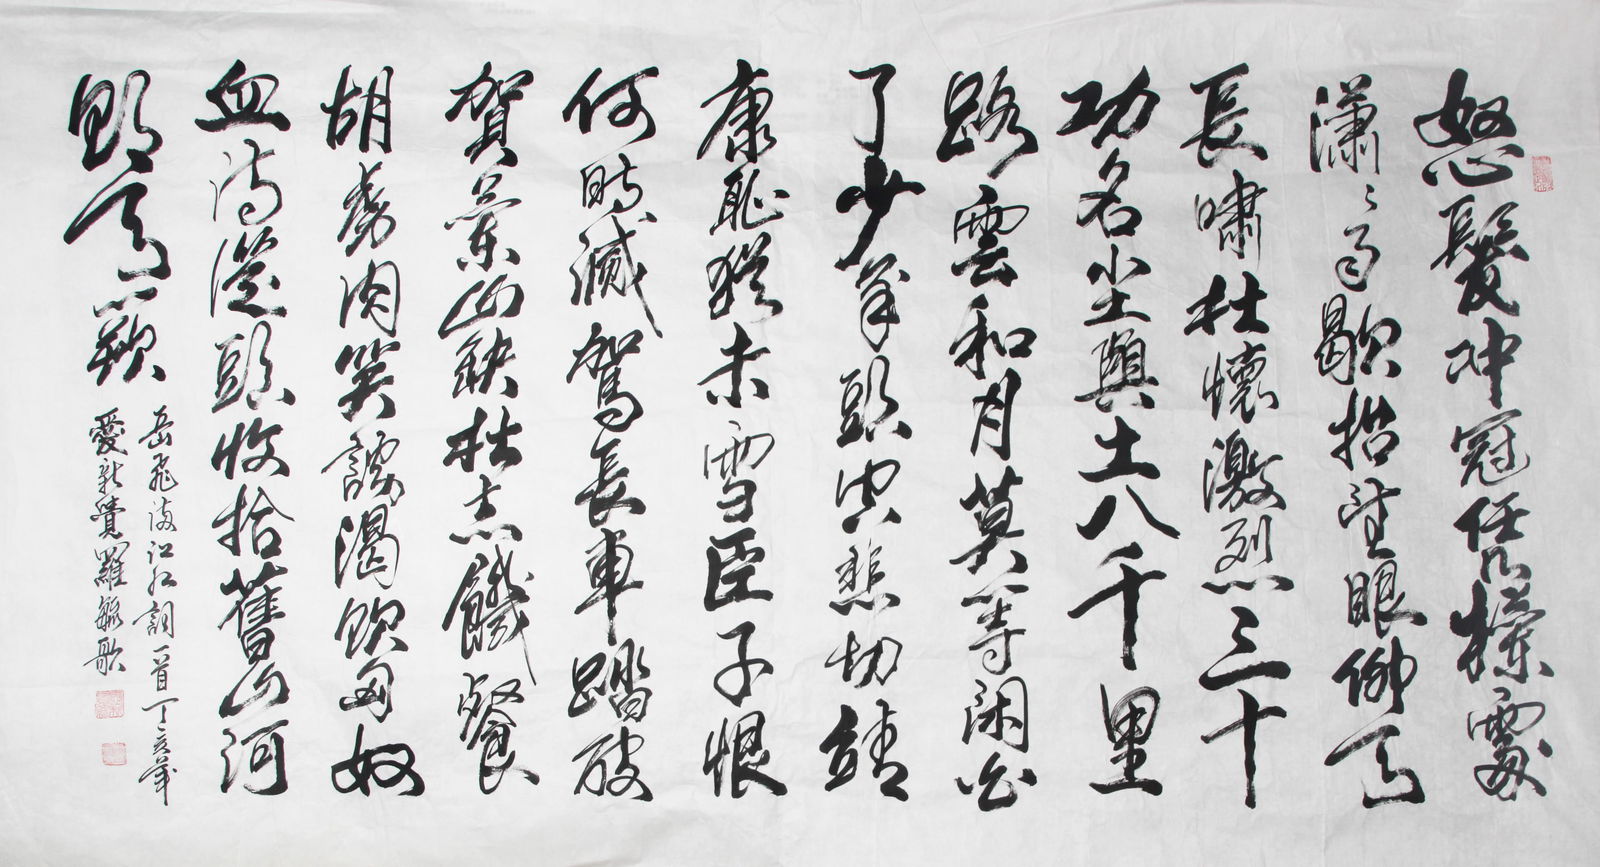 怒髮冲冠凭欄處
瀟〻雨歇抬望眼仰天
長嘯壯懷激烈三十
功名尘與土八千里
路雲和月莫等閑白
了少年頭空悲切靖
康恥猶未雪臣子恨
何時滅駕長車踏破
賀蘭山缺壯志饑餐
胡虜肉笑談渴飲匈奴
血待從頭收拾舊山河
朝天闕
岳飛滿江红詞一首丁亥年
愛新覺羅毓歌